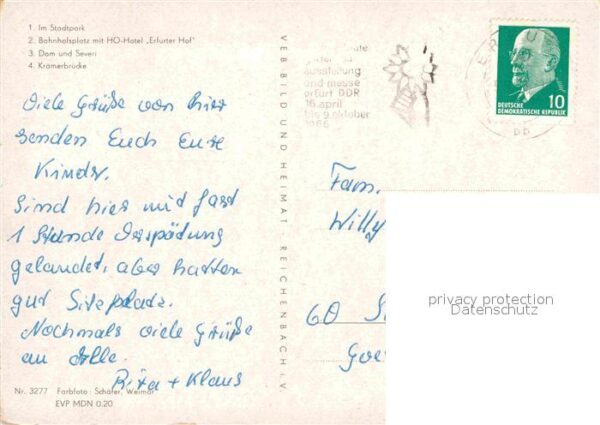 1. Im Stadtpark
2. Bahnhofsplatz mit HO-Hotel „Erfurter Hof"
3. Dom und Severi
4. Krämerbrücke
Viele Grüße von hier
senden Euch Eure
Kinder.
Sind hier mit fast
1 Stunde Verspätung
gelandet, aber hatten
gut Sitzplatz.
Nochmals viele Grüße
an Alle.
Rita + Klaus
Nr. 3277 Farbfoto: Schäfer, Weimar
EVP MDN 0.20
VEB BILD UND HEIMAT, REICHENBACH i. V.
ausstellung
und messe
erfurt DDR
16. april
bis 9. oktober
1966
DEUTSCHE
DEMOKRATISCHE REPUBLIK
10
bb
Fam.
Willy
60
privacy protection
Datenschutz